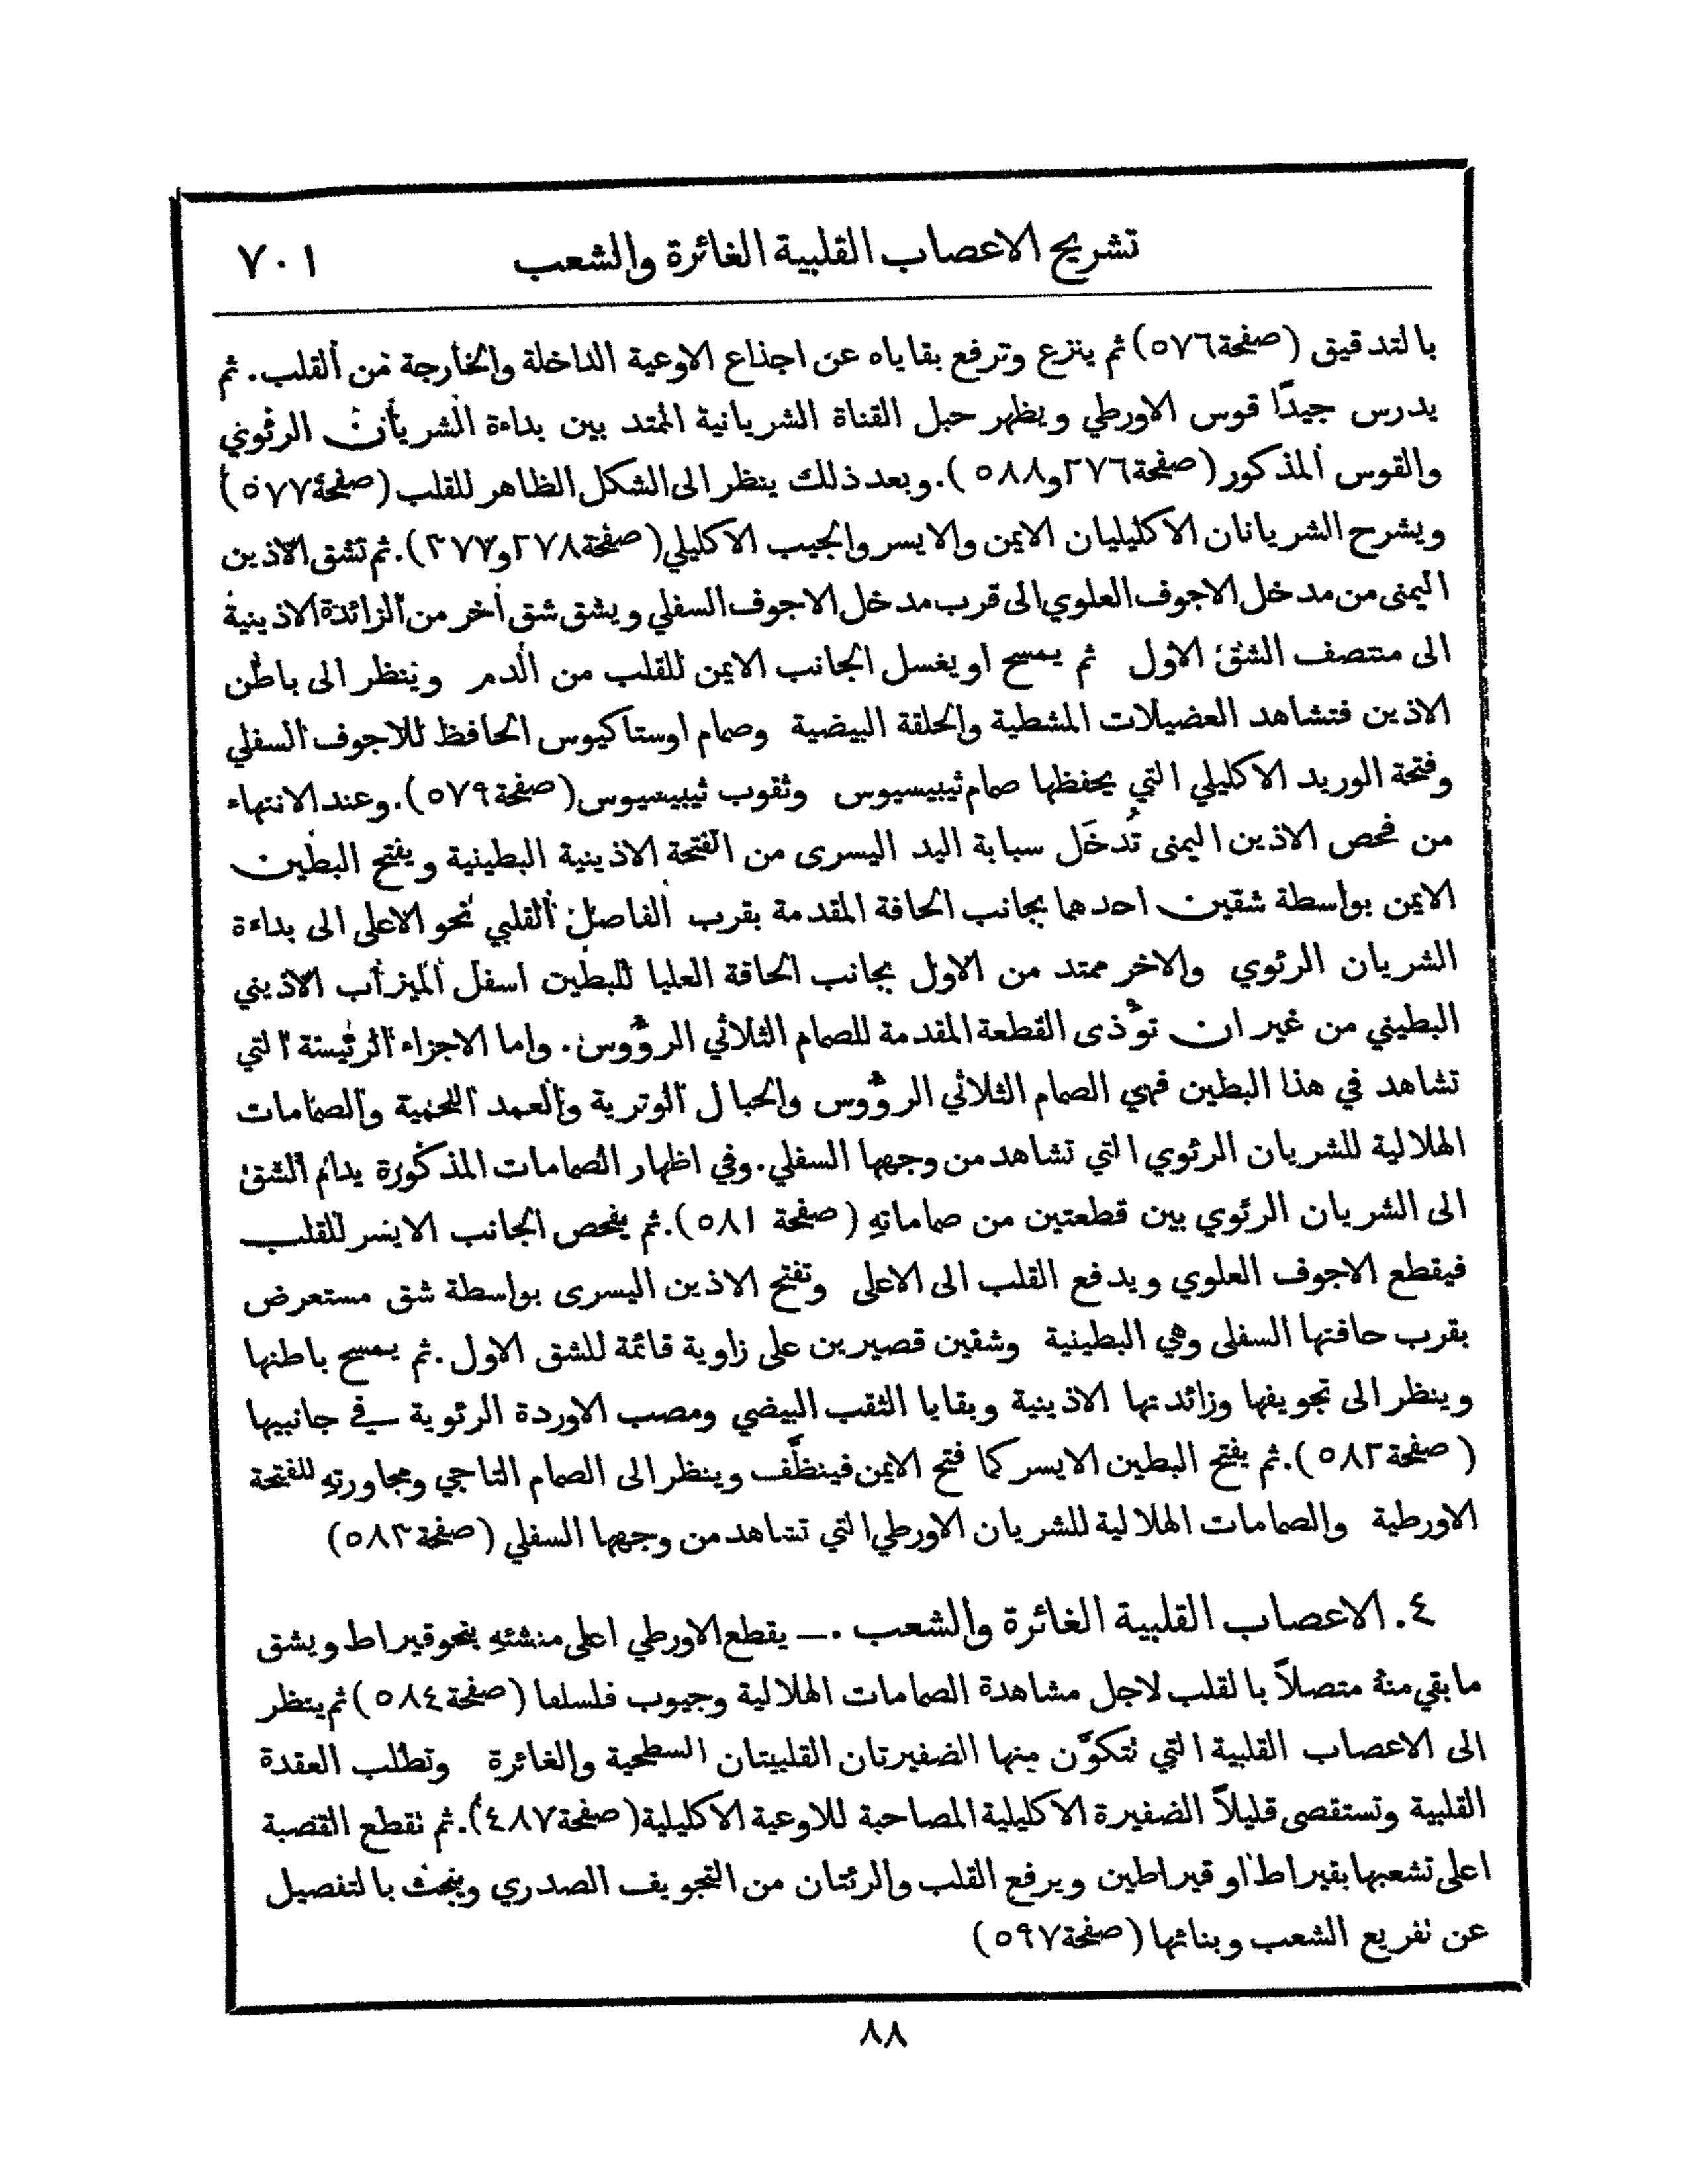 تشريح الاعصاب القلبية الغائرة والشعب ٧٠١
بالتدقيق (صفحة ٥٧٦) ثم ينزع وترفع بقاياه عن اجذاع الاوعية الداخلة والخارجة من القلب. ثم
يدرس جيدًا قوس الاورطي ويظهر حبل القناة الشريانية الممتد بين بداءة الشريان الرئوي
والقوس المذكور (صفحة ٢٧٦ و٥٨٨). وبعد ذلك ينظر الى الشكل الظاهر للقلب (صفحة ٥٧٧)
ويشرح الشريانان الاكليليان الايمن والايسر والجيب الاكليلي (صفحة ٢٧٨ و٣٧٣). ثم تشق الاذين
اليمنى من مدخل الاجوف العلوي الى قرب مدخل الاجوف السفلي ويشق شق اخر من الزائدة الاذينية
الى منتصف الشق الاول ثم يمسح او يغسل الجانب الايمن للقلب من الدم وينظر الى باطن
الاذين فتشاهد العضيلات المشطية والحلقة البيضية وصمام اوستاكيوس الحافظ للاجوف السفلي
وفتحة الوريد الاكليلي التي يحفظها صمام ثيبيسيوس وثقوب ثيبيسيوس (صفحة ٥٧٩). وعند الانتهاء
من فحص الاذين اليمنى تُدخَل سبابة اليد اليسرى من الفتحة الاذينية البطينية ويفتح البطين
الايمن بواسطة شقين احدهما بجانب الحافة المقدمة بقرب الفاصل القلبي نحو الاعلى الى بداءة
الشريان الرئوي والاخر ممتد من الاول بجانب الحافة العليا للبطين اسفل الميزاب الاذيني
البطيني من غير ان تؤْذى القطعة المقدمة للصمام الثلاثي الرؤُوس. واما الاجزاء الرئيسة التي
تشاهد في هذا البطين فهي الصمام الثلاثي الرؤُوس والحبال الوترية والعمد اللحمية والصمامات
الهلالية للشريان الرئوي التي تشاهد من وجهها السفلي. وفي اظهار الصمامات المذكورة يدام الشق
الى الشريان الرئوي بين قطعتين من صماماتهِ (صفحة ٥٨١). ثم يفحص الجانب الايسر للقلب
فيقطع الاجوف العلوي ويدفع القلب الى الاعلى وتفتح الاذين اليسرى بواسطة شق مستعرض
بقرب حافتها السفلى وهي البطينية وشقين قصيرين على زاوية قائمة للشق الاول. ثم يمسح باطنها
وينظر الى تجويفها وزائدتها الاذينية وبقايا الثقب البيضي ومصب الاوردة الرئوية في جانبيها
(صفحة ٥٨٢). ثم يفتح البطين الايسر كما فتح الايمن فينظَّف وينظر الى الصمام التاجي ومجاورتهِ للفتحة
الاورطية والصمامات الهلالية للشريان الاورطي التي تشاهد من وجهها السفلي (صفحة ٥٨٣)
٤. الاعصاب القلبية الغائرة والشعب. — يقطع الاورطي اعلى منشئهِ بنحو قيراط ويشق
ما بقي منهُ متصلاً بالقلب لاجل مشاهدة الصمامات الهلالية وجيوب فلسلفا (صفحة ٥٨٤) ثم ينظر
الى الاعصاب القلبية التي تتكوَّن منها الضفيرتان القلبيتان السطحية والغائرة وتطلب العقدة
القلبية وتستقصى قليلاً الضفيرة الاكليلية المصاحبة للاوعية الاكليلية (صفحة ٤٨٧). ثم تقطع القصبة
اعلى تشعبها بقيراط او قيراطين ويرفع القلب والرئتان من التجويف الصدري ويبحث بالتفصيل
عن تفريع الشعب وبنائها (صفحة ٥٩٧)
٨٨